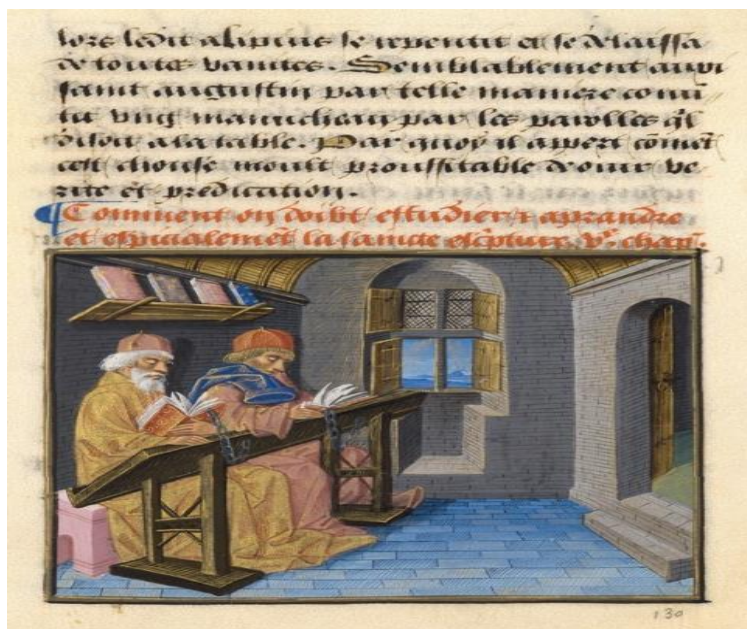 lors ledit alipius se repentit et se delaissa
de toutes vanites. Semblablement aussi
saint augustin par telle maniere conũ
tit vng manicheau par les parolles q̃l
disoit a la table. Par quoy il appert cõmẽt
cest chouse moult prouffitable de ouir ve
rite et predication.
¶ Comment on doibt estudier ⁊ aprandre
et espicialemẽt la saincte esc̃pture. v.e chap.
130